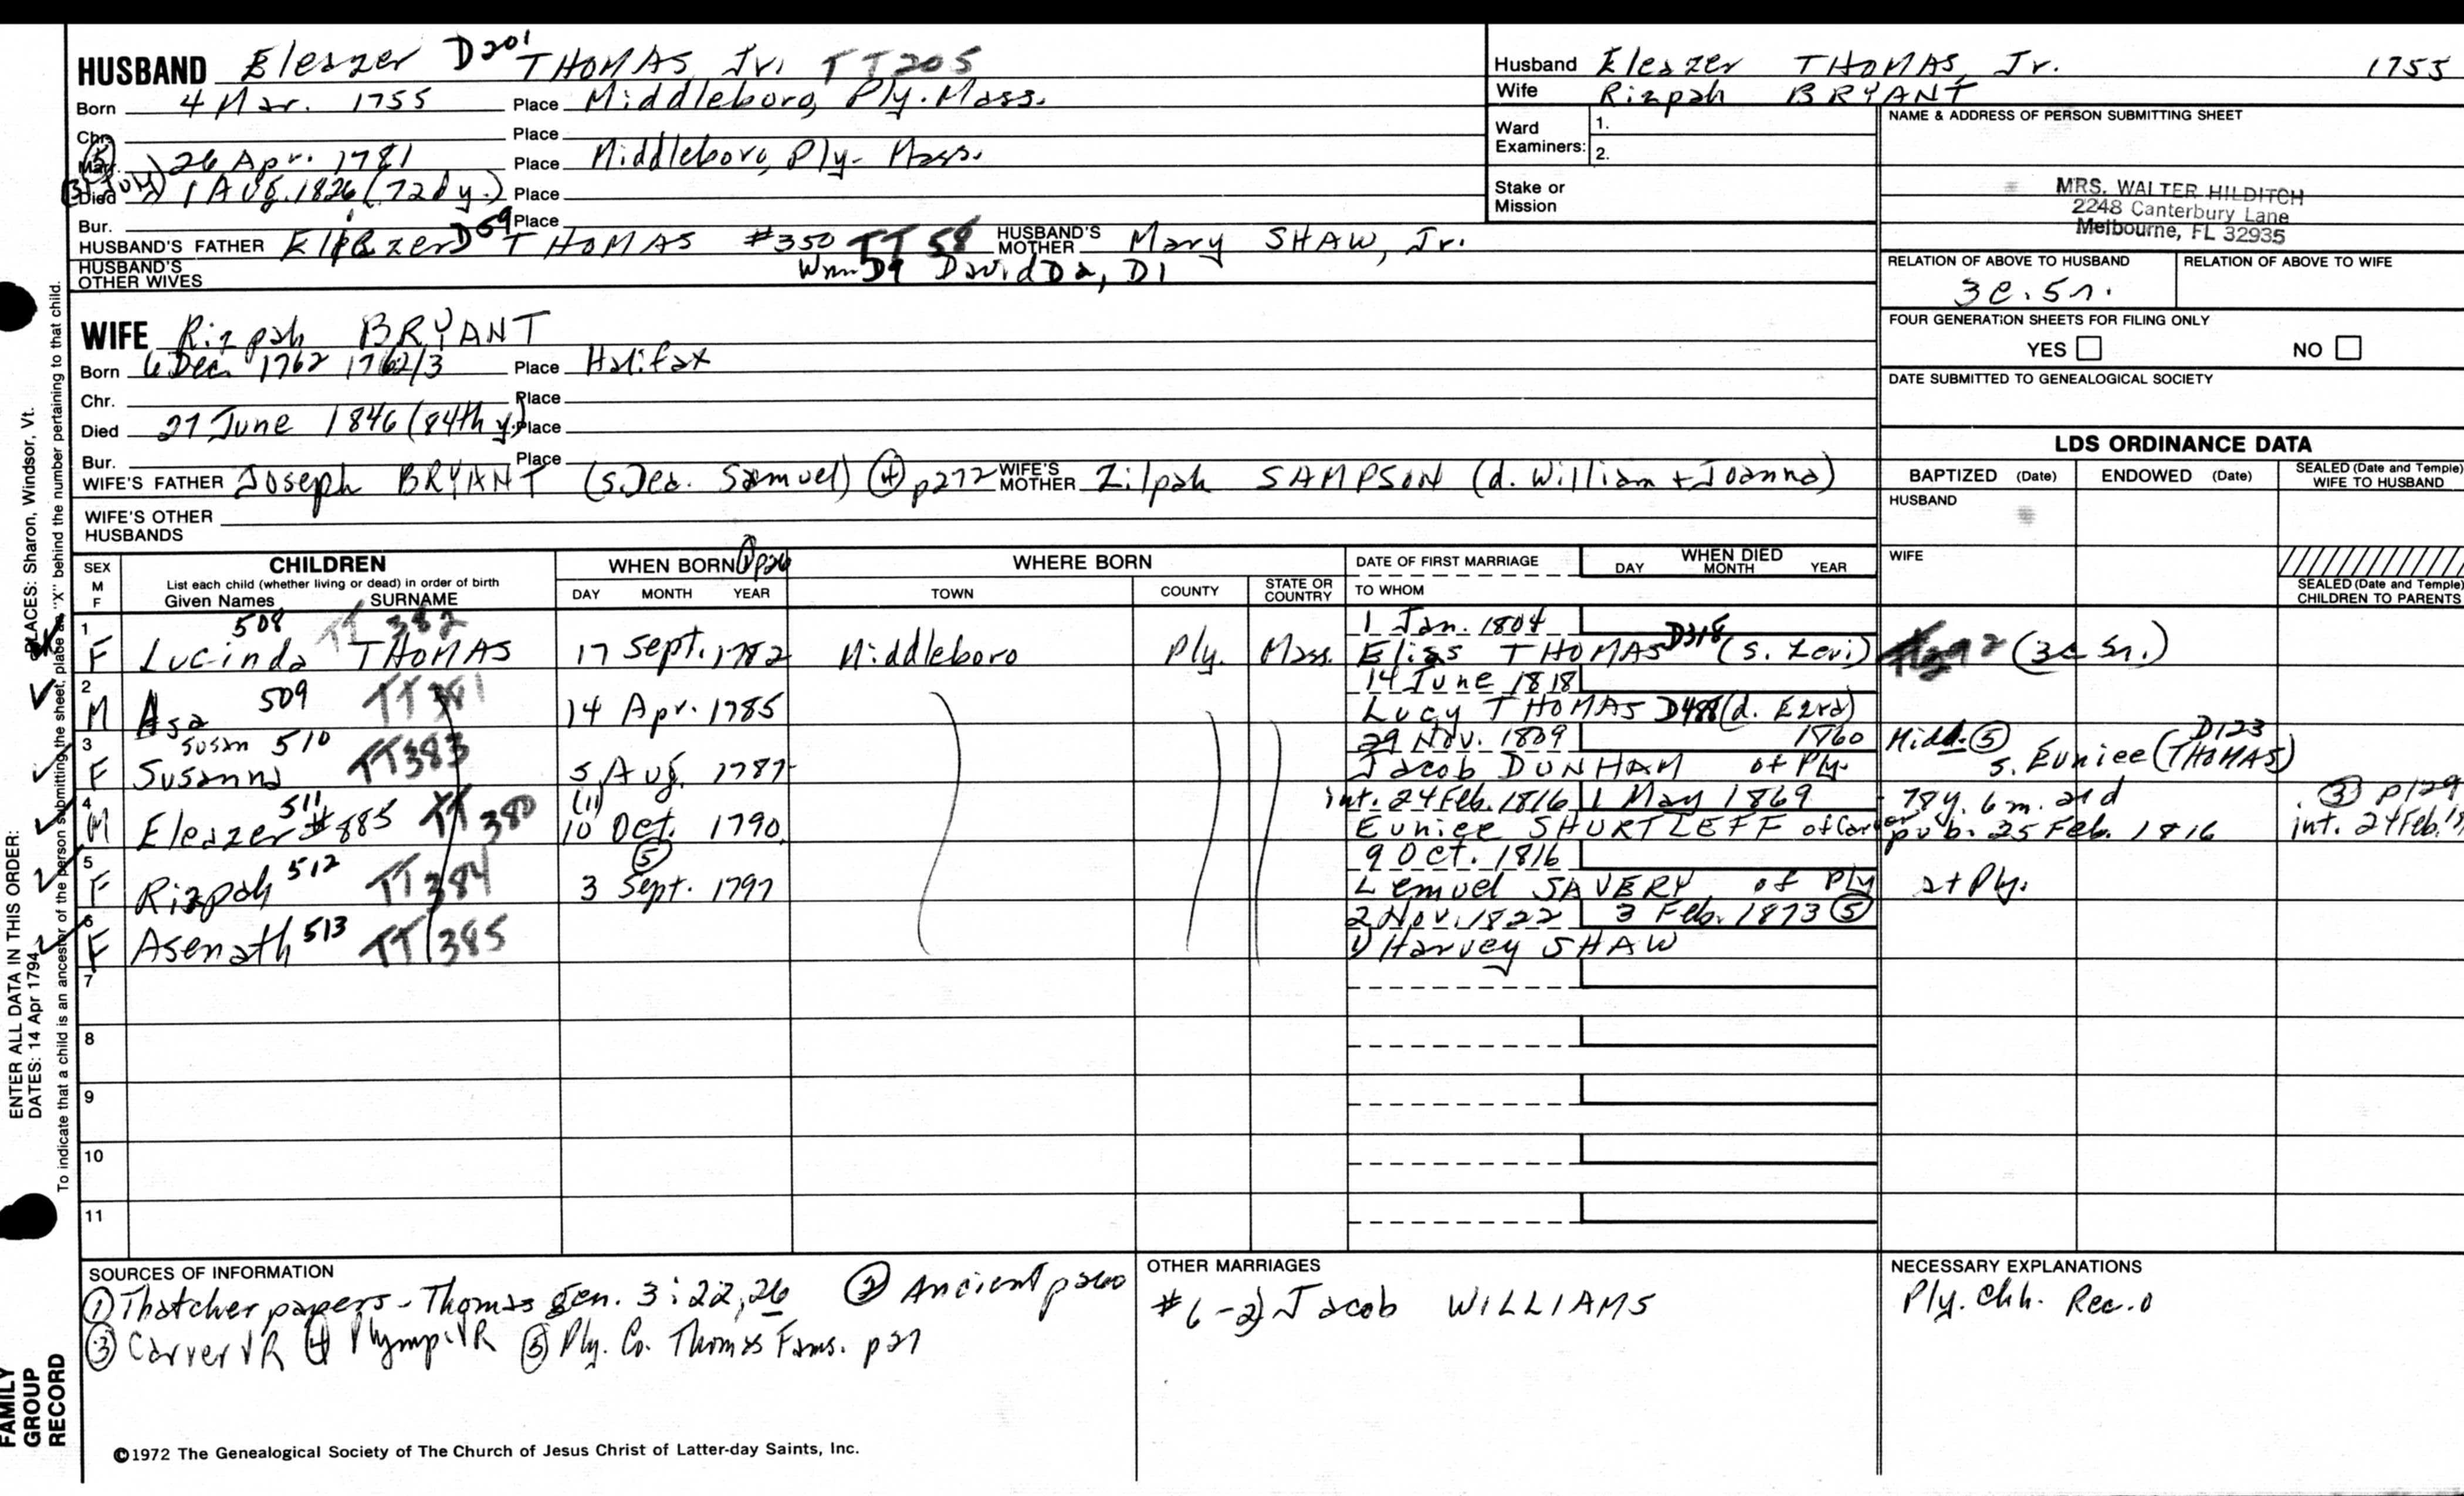 HUSBAND Eleazer D201 THOMAS, Jr. TT205
Born 4 Mar. 1755 Place Middleboro, Ply. Mass.
Chr. Place
Marr. 26 Apr. 1781 Place Middleboro, Ply. Mass.
Died 1 Aug. 1826 (72d y.) Place
Bur. Place
HUSBAND'S FATHER Eleazer D59 THOMAS #350 TT 58 HUSBAND'S MOTHER Mary SHAW, Jr.
HUSBAND'S OTHER WIVES Wm D9 David D2, D1
Husband Eleazer THOMAS, Jr. 1755
Wife Rizpah BRYANT
Ward Examiners: 1.
2.
Stake or Mission
NAME & ADDRESS OF PERSON SUBMITTING SHEET
MRS. WALTER HILDITCH
2248 Canterbury Lane
Melbourne, FL 32935
RELATION OF ABOVE TO HUSBAND RELATION OF ABOVE TO WIFE
3c.5r.
FOUR GENERATION SHEETS FOR FILING ONLY
YES NO
DATE SUBMITTED TO GENEALOGICAL SOCIETY
WIFE Rizpah BRYANT
Born 6 Dec. 1762 1762/3 Place Halifax
Chr. Place
Died 27 June 1846 (84th y.) Place
Bur. Place
WIFE'S FATHER Joseph BRYANT (s. Dea. Samuel) ④ p272 WIFE'S MOTHER Zilpah SAMPSON (d. William + Joanna)
WIFE'S OTHER HUSBANDS
LDS ORDINANCE DATA
BAPTIZED (Date) ENDOWED (Date) SEALED (Date and Temple) WIFE TO HUSBAND
HUSBAND
WIFE
SEALED (Date and Temple) CHILDREN TO PARENTS
SEX M F CHILDREN List each child (whether living or dead) in order of birth Given Names SURNAME
WHEN BORN ① p26 DAY MONTH YEAR
WHERE BORN TOWN COUNTY STATE OR COUNTRY
DATE OF FIRST MARRIAGE TO WHOM
WHEN DIED DAY MONTH YEAR
1 F Lucinda 508 THOMAS TT 382 17 Sept. 1782 Middleboro Ply. Mass. 1 Jan. 1804
Elias THOMAS D318 (s. Levi) (3c 5r.)
2 M Asa 509 TT381 14 Apr. 1785 14 June 1818
Lucy THOMAS D488 (d. Ezra)
3 F Susan 510 Susanna TT383 5 Aug. 1787 29 Nov. 1809 1860
Jacob DUNHAM of Ply. Midd. ⑤ s. Euniee (THOMAS) D123
4 M Eleazer 511 #885 TT 380 (11) 10 Oct. 1790 int. 24 Feb. 1816 1 May 1869 78y. 6m. 21d ③ p129
Euniee SHURTLEFF of Carver pub. 25 Feb. 1816 int. 24 Feb.
5 F Rizpah 512 TT384 ⑤ 3 Sept. 1797 9 Oct. 1816
Lemuel SAVERY of Ply at Ply.
6 F Asenath 513 TT385 2 Nov. 1822 3 Feb. 1873 ⑤
1) Harvey SHAW
7
8
9
10
11
SOURCES OF INFORMATION
① Thatcher papers - Thomas gen. 3:22,26 ② Ancient p260
③ Carver VR ④ Plymp. VR ⑤ Ply. Co. Thomas Fams. p27
OTHER MARRIAGES
#6-2) Jacob WILLIAMS
NECESSARY EXPLANATIONS
Ply. Chh. Rec.
©1972 The Genealogical Society of The Church of Jesus Christ of Latter-day Saints, Inc.
ENTER ALL DATA IN THIS ORDER:
PLACES: Sharon, Windsor, Vt.
DATES: 14 Apr 1794
To indicate that a child is an ancestor of the person submitting the sheet, place an "X" behind the number pertaining to that child.
FAMILY GROUP RECORD